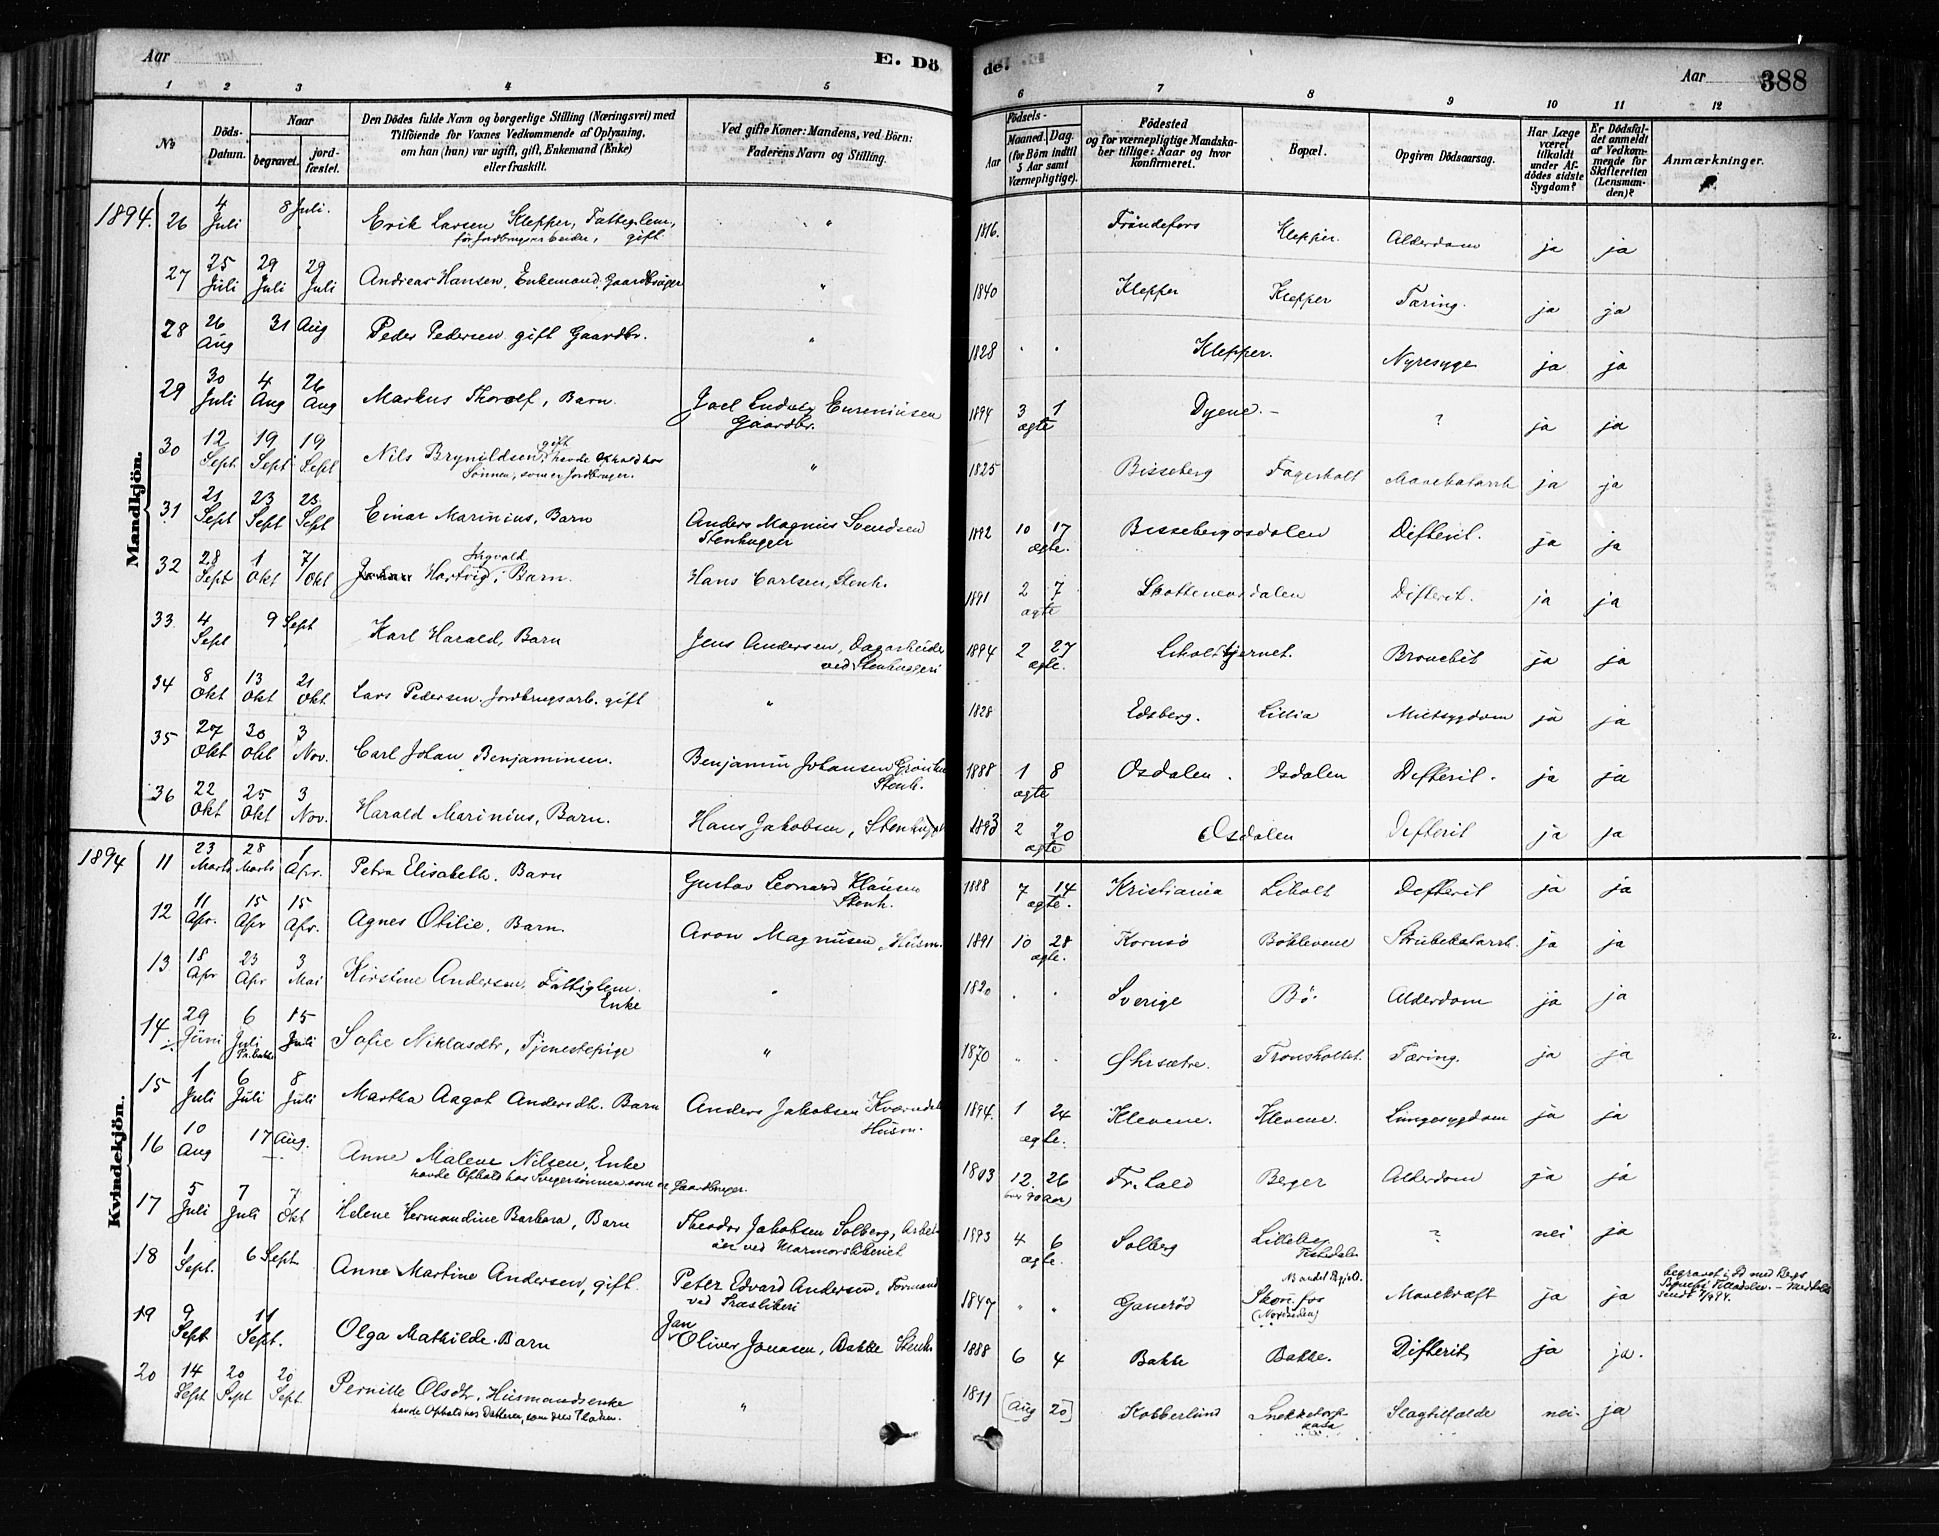 Aar E. Dö de. Aar 388
1 2 3 4 5 6 7 8 9 10 11 12
No Döds-Datum. Naar begravet. jord-fæstet. Den Dödes fulde Navn og borgerlige Stilling (Næringsvei) med Tilföiende for Voxnes Vedkommende af Oplysning, om han (hun) var ugift, gift, Enkemand (Enke) eller fraskilt. Ved gifte Koner: Mandens, ved Börn: Faderens Navn og Stilling. Födsels- Aar Maaned. Dag. (for Börn indtil 5 Aar samt Værnepligtige). Födested og for værnepligtige Mandska-ber tillige: Naar og hvor konfirmeret. Bopæl. Opgiven Dödsaarsag. Har Læge været tilkaldt under Af-dödes sidste Sygdom? Er Dödsfal-det anmeldt af Vedkom-mende for Skifteretten (Lensman-den)? Anmærkninger.
Mandkjön.
1894. 26 4 Juli 8 Juli. Erik Larsen Klepper, Fattiglem, gift " 1816. Fröndefors Klepper. Alderdom ja ja
27 25 Juli 29 Juli 29 Juli Andreas Hansen, Enkemand, Gaardbruger " 1840 Klepper Klepper Tæring. ja ja
28 26 Aug 31 Aug Peder Pedersen gift Gaardbr. " 1828 Klepper. Nyresyge ja ja
29 30 Juli 4 Aug 26 Aug Markus Thorolf, Barn. Joel Ludvig Gaardbr. 1894 3 1 ægte Dyene. ? ja ja
30 12 Sept. 19 Sept 19 Sept Nils Brynildsen, gift havde Ophold hos Sönnen, som er Jordbruger. " 1825 Bisseberg Fagerholt Mavekatarrh ja ja
31 21 Sept 23 Sept 23 Sept Einar Marinius, Barn Anders Magnus Svendsen Stenhugger 1892 10 17 ægte. Bissebergosdalen Difterit. ja ja
32 28 Sept 1 Okt 7/ Okt Johan Hartvig Ingvald, Barn. Hans Carlsen, Stenh. 1891 2 7 ægte Difterit. ja ja
33. 4 Sept 9 Sept Karl Harald, Barn Jens Andersen, Dagarbeider ved Stenhuggeri 1894 2 27 ægte. Liholttjernet. Bronchit ja ja
34 8 Okt 13 Okt 21 Okt Lars Pedersen. Jordbrugsarb. gift " 1828 Edsberg. Lillia Miltsygdom ja ja
35 27 Okt 30 Okt 3 Nov. Carl Johan Benjaminsen. Benjamin Johansen Stenh. 1888 1 8 ægte Osdalen. Osdalen Difterit. ja ja
36 22 Okt 25 Okt 3 Nov. Harald Marinius, Barn. Hans Jakobsen, Stenhugger 1893 2 20 ægte Osdalen Difterit ja ja
Kvindekjön.
1894 11 23 Marts 28 Marts 1 Apr. Petra Elisabeth. Barn Gustav Leonard Klausen Stenh. 1888 7 14 ægte. Kristiania Liholt Difterit ja ja
12 11 Apr. 15 Apr 15 Apr. Agnes Otilie, Barn. Aron Magnusen, Husm. 1891 10 28 ægte. Kornsö Böklevene Strubekatarrh. ja ja
13. 18 Apr 23 Apr 3 Mai Kirstine Andersen, Fattiglem. Enke " 1820 " " Sverige Bö. Alderdom ja ja
14 29 Juni 6 Juli 15 Juli Sofie Niklasdtr, Tjenestepige " 1870 " " Öhrsætre. Tronsholtet. Tæring. ja ja
15 1 Juli 6 Juli 8 Juli Martha Aagot Andersdtr. Barn Anders Jakobsen Husm. 1894. 1 24 ægte. Klevene. Klevene. Lungesygdom ja ja
16 10 Aug 17 Aug. Anne Malene Nilsen, Enke havde Ophold hos Svigersönnen som er Gaardbruger. 1803 12. 26 (over 90 aar) Fr.hald Berger Alderdom ja ja
17 5 Juli 7 Juli 7 Okt Helene Hermandine Barbara, Barn Theodor Jakobsen Solberg, 1893 4 6 ægte. Solberg ? nei ja
18 1 Sept. 6 Sept Anne Martine Andersen, gift. Peter Edvard Andersen, Formand ved Træsliberi 1847 " " Ganeröd Skonfos (Nordsiden) Mavekræft ja ja
19 9 Sept 11 Sept. Olga Mathilde. Barn Jan Oliver Jonasen, Bakke Stenh. 1888 6 4 Bakke Bakke. Difterit ja ja.
20 14 Sept 20 Sept 20 Sept. Pernille Olsdtr. Husmandsenke havde Ophold hos Datteren, som drev Pladsen. " 1811 [Aug 20] Kobberlund Slagtilfælde nei ja